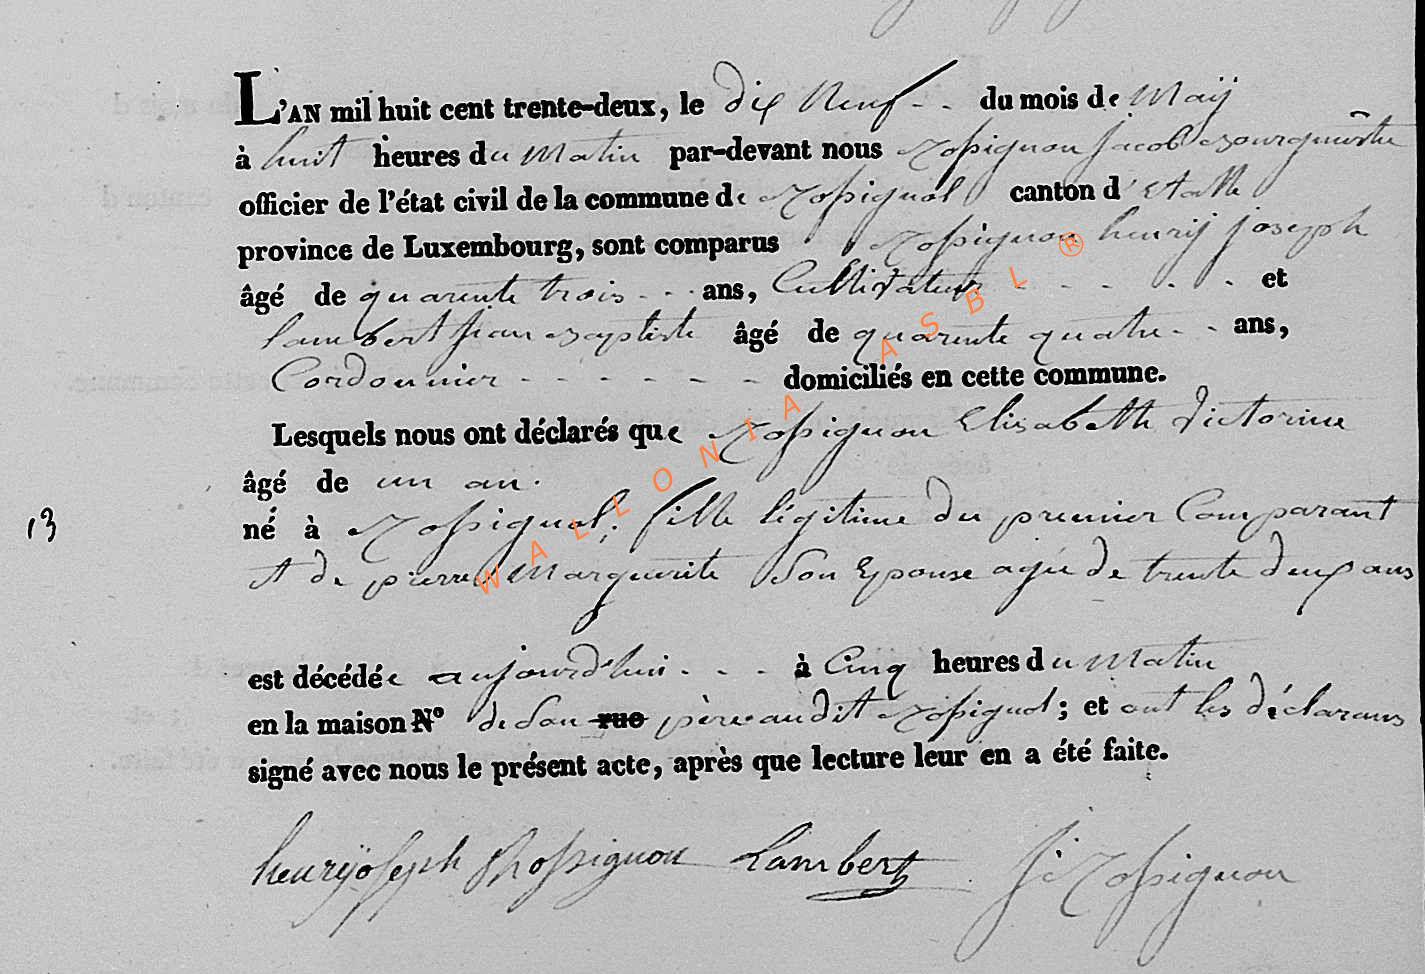 L'AN mil huit cent trente-deux, le dix Neuf - - du mois de Maÿ
à huit heures du Matin par-devant nous Rossignon jacob Bourgumêstre
officier de l'état civil de la commune de Rossignol canton d'Etalle
province de Luxembourg, sont comparus Rossignon henrij joseph
âgé de quarente trois - - - ans, Cultivateur - - - - - et
lambert jean Baptiste âgé de quarente quatre - - ans,
Cordonnier - - - - - - - domiciliés en cette commune.
Lesquels nous ont déclarés que Rossignon Elisabeth victorine
âgé de un an.
13
né à Rossignol, fille légitime du premier Comparant
et de pierre Marguerite Son Epouse agée de trente deux ans
est décédée aujourd'hui - - - à Cinq heures du Matin
en la maison N° de Son rue père audit Rossignol; et ont les déclarans
signé avec nous le présent acte, après que lecture leur en a été faite.
henrÿjoseph Rhossignon Lambert J: Rossignon
WALLONIA ASBL ®